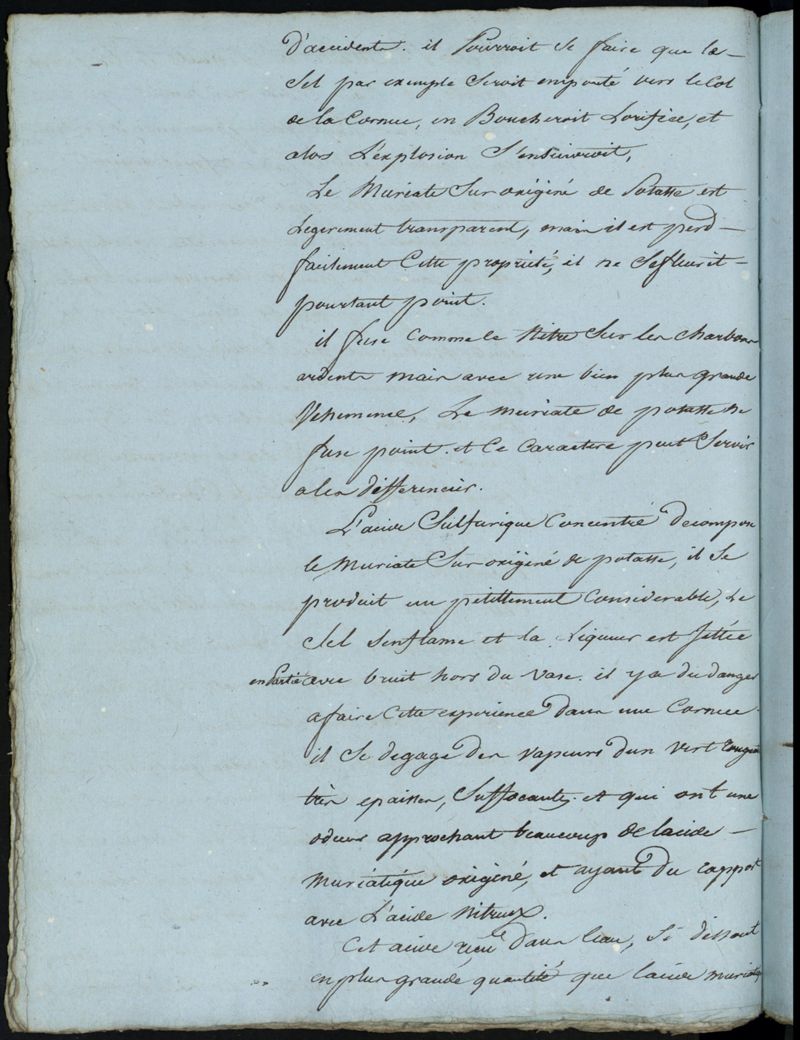 d'accidents. il Pourroit se faire que le
Sel par exemple Seroit emporté vers le Col
de la Cornue, en Boucheroit Lorifice, et
alors L'explosion S'ensuivroit,
Le Muriate Sur origéné de Potasse est
Legerement transparent, mais il est perd
facilement Cette proprieté, il ne Sefleurit
pourtant point.
il fuse Comme le Nitre Sur les charbons
ardents mais avec une bien plus grande
Vehemence, Le muriate de potasse ne
fuse point. et Ce Caractere peut Servir
a les differencier.
L'acide Sulfurique Concentré decompose
le Muriate Sur origéné de potasse, il Se
produit un petillement Considerable, Le
Sel senflame et la Liqueur est Jettée
en Partie avec bruit hors du vase. il y a du danger
a faire Cette experience dans une Cornue.
il Se degage des vapeurs dun vert rouge
très epaisses, Suffocantes. et qui ont une
odeur approchant beaucoup de lacide
Muriatique origéné, et ayant du rapport
avec L'acide Nitreux.
Cet acide reçu dans leau, Se dissout
en plus grande quantité que lacide muriatiq